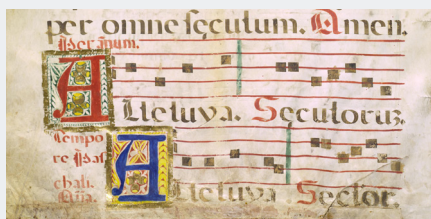 per omne seculum. Amen.
Per annum.
Alleluya. Seculorum.
Tempo
re Pas
chali.
Aña.
Alleluya Sector.